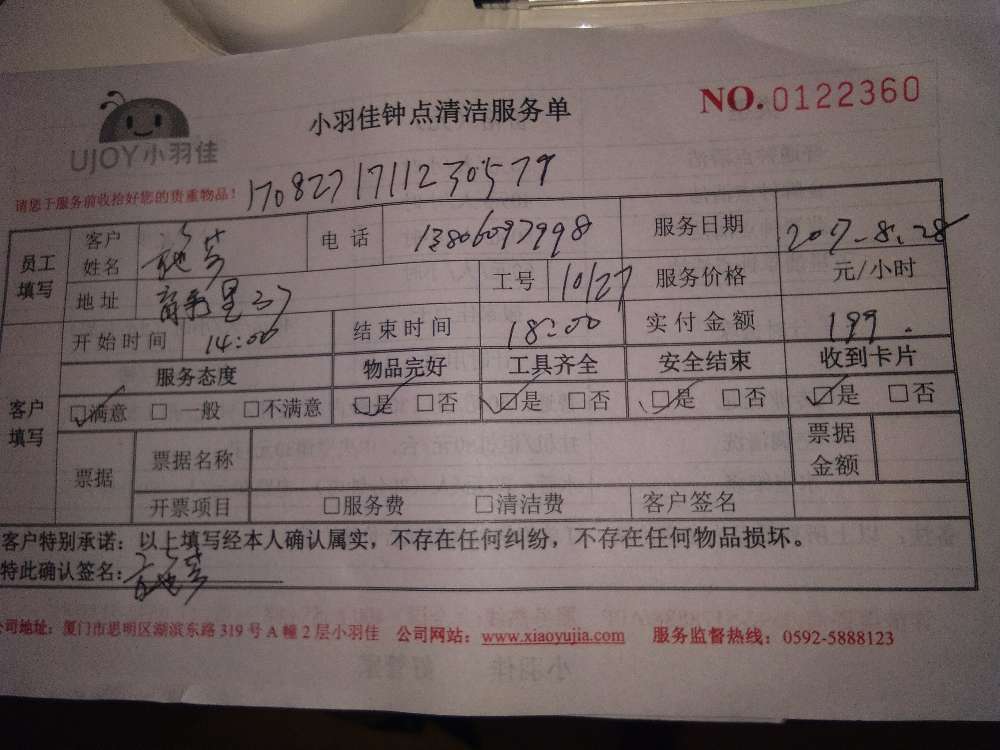 UJOY小羽佳
小羽佳钟点清洁服务单
NO.0122360
请您于服务前收拾好您的贵重物品!
1708271711230579
员工填写 客户姓名 电话 13806097998 服务日期 2017.8.28
地址 工号 10127 服务价格 元/小时
开始时间 14:00 结束时间 18:00 实付金额 199.
客户填写 服务态度 物品完好 工具齐全 安全结束 收到卡片
☑满意 □ 一般 □不满意 ☑是 □否 ☑是 □否 ☑是 □否 ☑是 □否
票据 票据名称 票据金额
开票项目 □服务费 □清洁费 客户签名
客户特别承诺:以上填写经本人确认属实,不存在任何纠纷,不存在任何物品损坏。
特此确认签名:
公司地址:厦门市思明区湖滨东路319号A幢2层小羽佳 公司网站:www.xiaoyujia.com 服务监督热线:0592-5888123